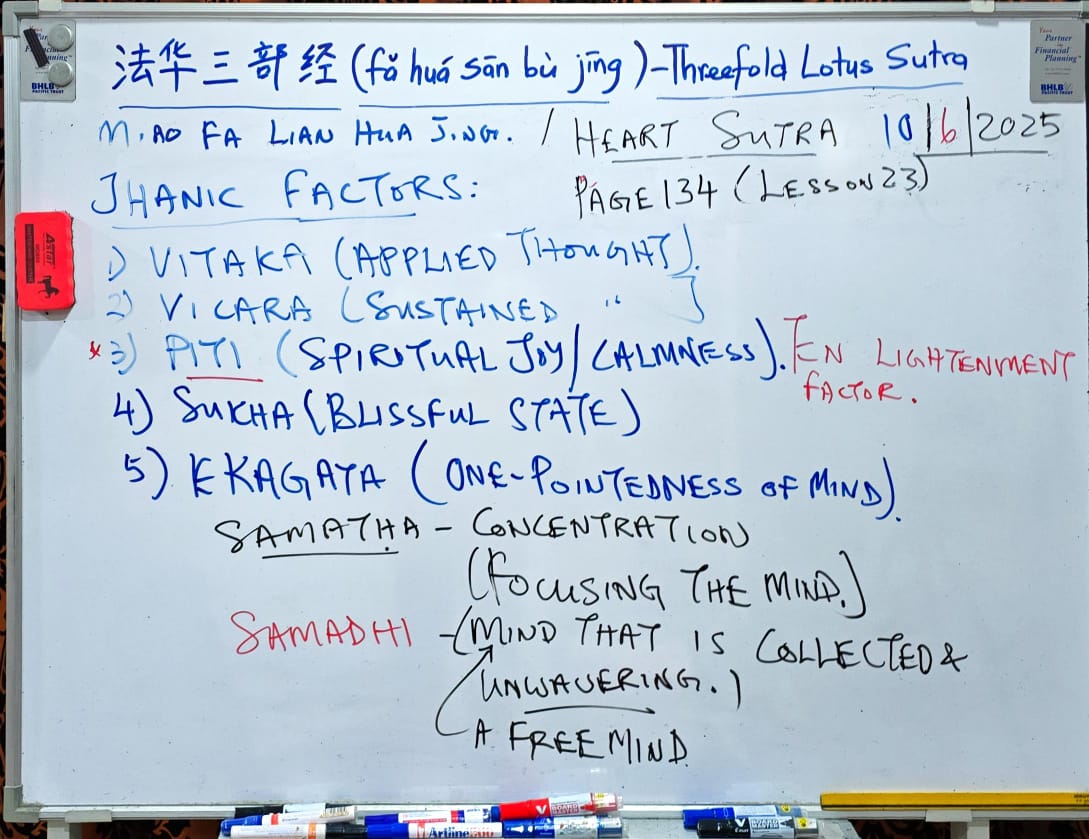 法华三部经 (fǎ huá sān bù jīng) - Threefold Lotus Sutra
MIAO FA LIAN HUA JING. / HEART SUTRA 10/6/2025
JHANIC FACTORS: PAGE 134 (LESSON 23)
1) VITAKA (APPLIED THOUGHT).
2) VICARA (SUSTAINED " )
* 3) PITI (SPIRITUAL JOY/CALMNESS). ENLIGHTENMENT FACTOR.
4) SUKHA (BLISSFUL STATE)
5) EKAGATA (ONE-POINTEDNESS OF MIND).
SAMATHA - CONCENTRATION
(FOCUSING THE MIND.)
SAMADHI - (MIND THAT IS COLLECTED &
UNWAVERING.)
A FREE MIND
Your Partner in Financial Planning
BHLB
PACIFIC TRUST
BHLB
PACIFIC TRUST
Astar
Artline